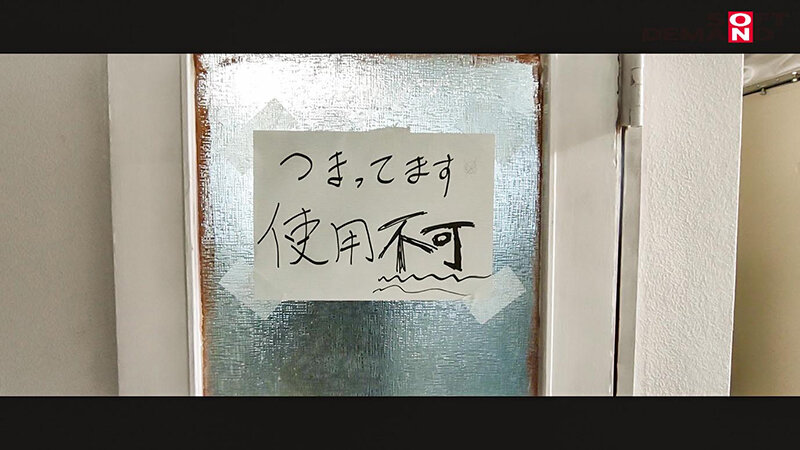 つまってます
使用不可
SOFT
ON
DEMAND